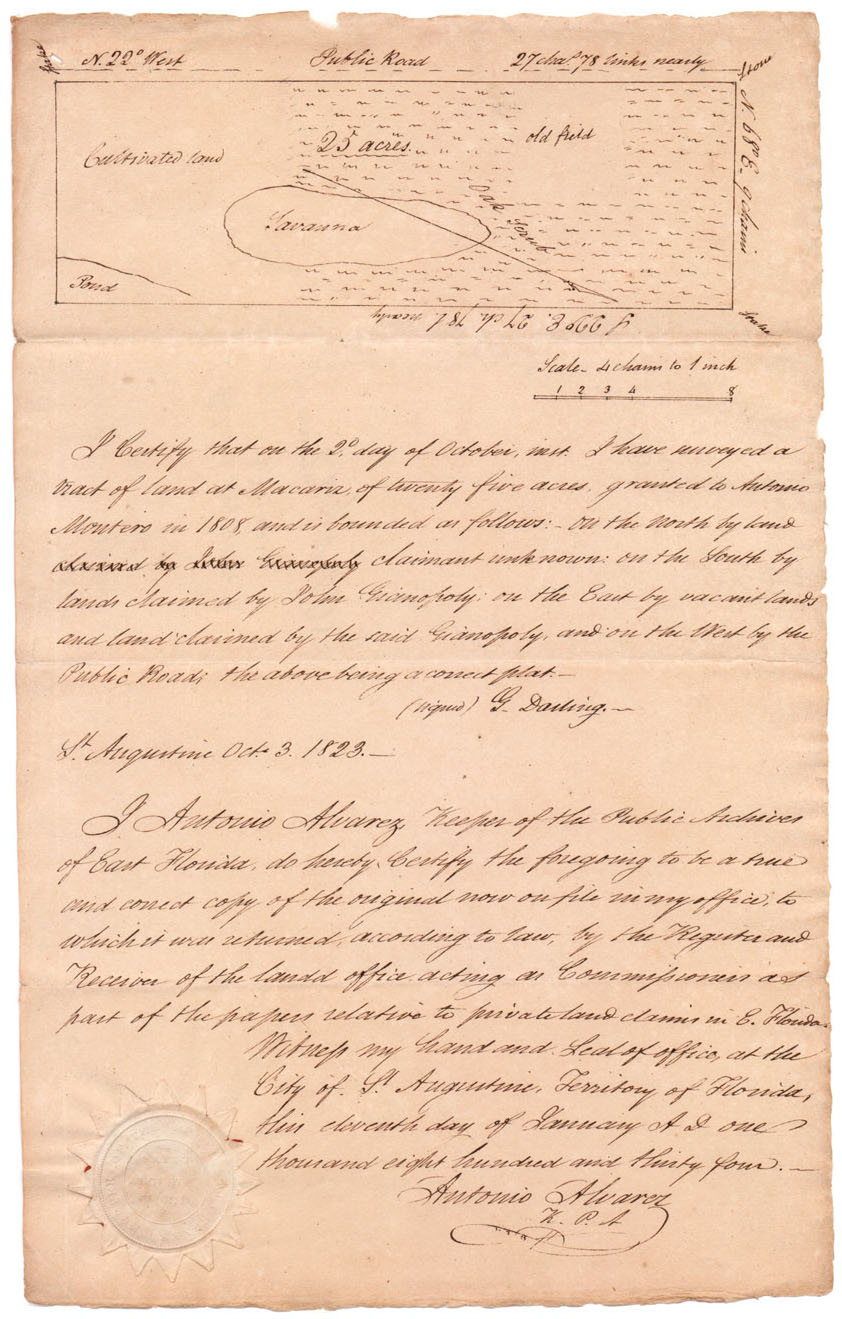 N. 22° West Public Road 27 cha.s 78 links nearly
Stake
Stone
N. 68° E. 9 chains
Cultivated land
25 acres.
old field
Oak Scrub
Savanna
Pond
Stake
S 22° E. 27 ch. 78 l. nearly
Scale - 4 chains to 1 inch
1 2 3 4 8
I Certify that on the 2d. day of October, inst. I have surveyed a
tract of land at Macariz, of twenty five acres, granted to Antonio
Montero in 1808, and is bounded as follows:- on the North by land
claimed by John Gianopoly claimant unknown: on the South by
lands claimed by John Gianopoly: on the East by vacant lands
and land claimed by the said Gianopoly, and on the West by the
Public Road; the above being a correct plat.-
(signed) G. Darling.-
St. Augustine Oct. 3. 1823.-
I Antonio Alvarez, Keeper of the Public Archives
of East Florida, do hereby Certify the foregoing to be a true
and correct copy of the original now on file in my office, to
which it was returned, according to law, by the Register and
Receiver of the landd office acting as Commissioners as
part of the papers relative to private land claims in E. Florida.
Witness my hand and Seal of office, at the
City of St. Augustine, Territory of Florida,
this eleventh day of January A D one
thousand eight hundred and thirty four.-
Antonio Alvarez
K. P. A